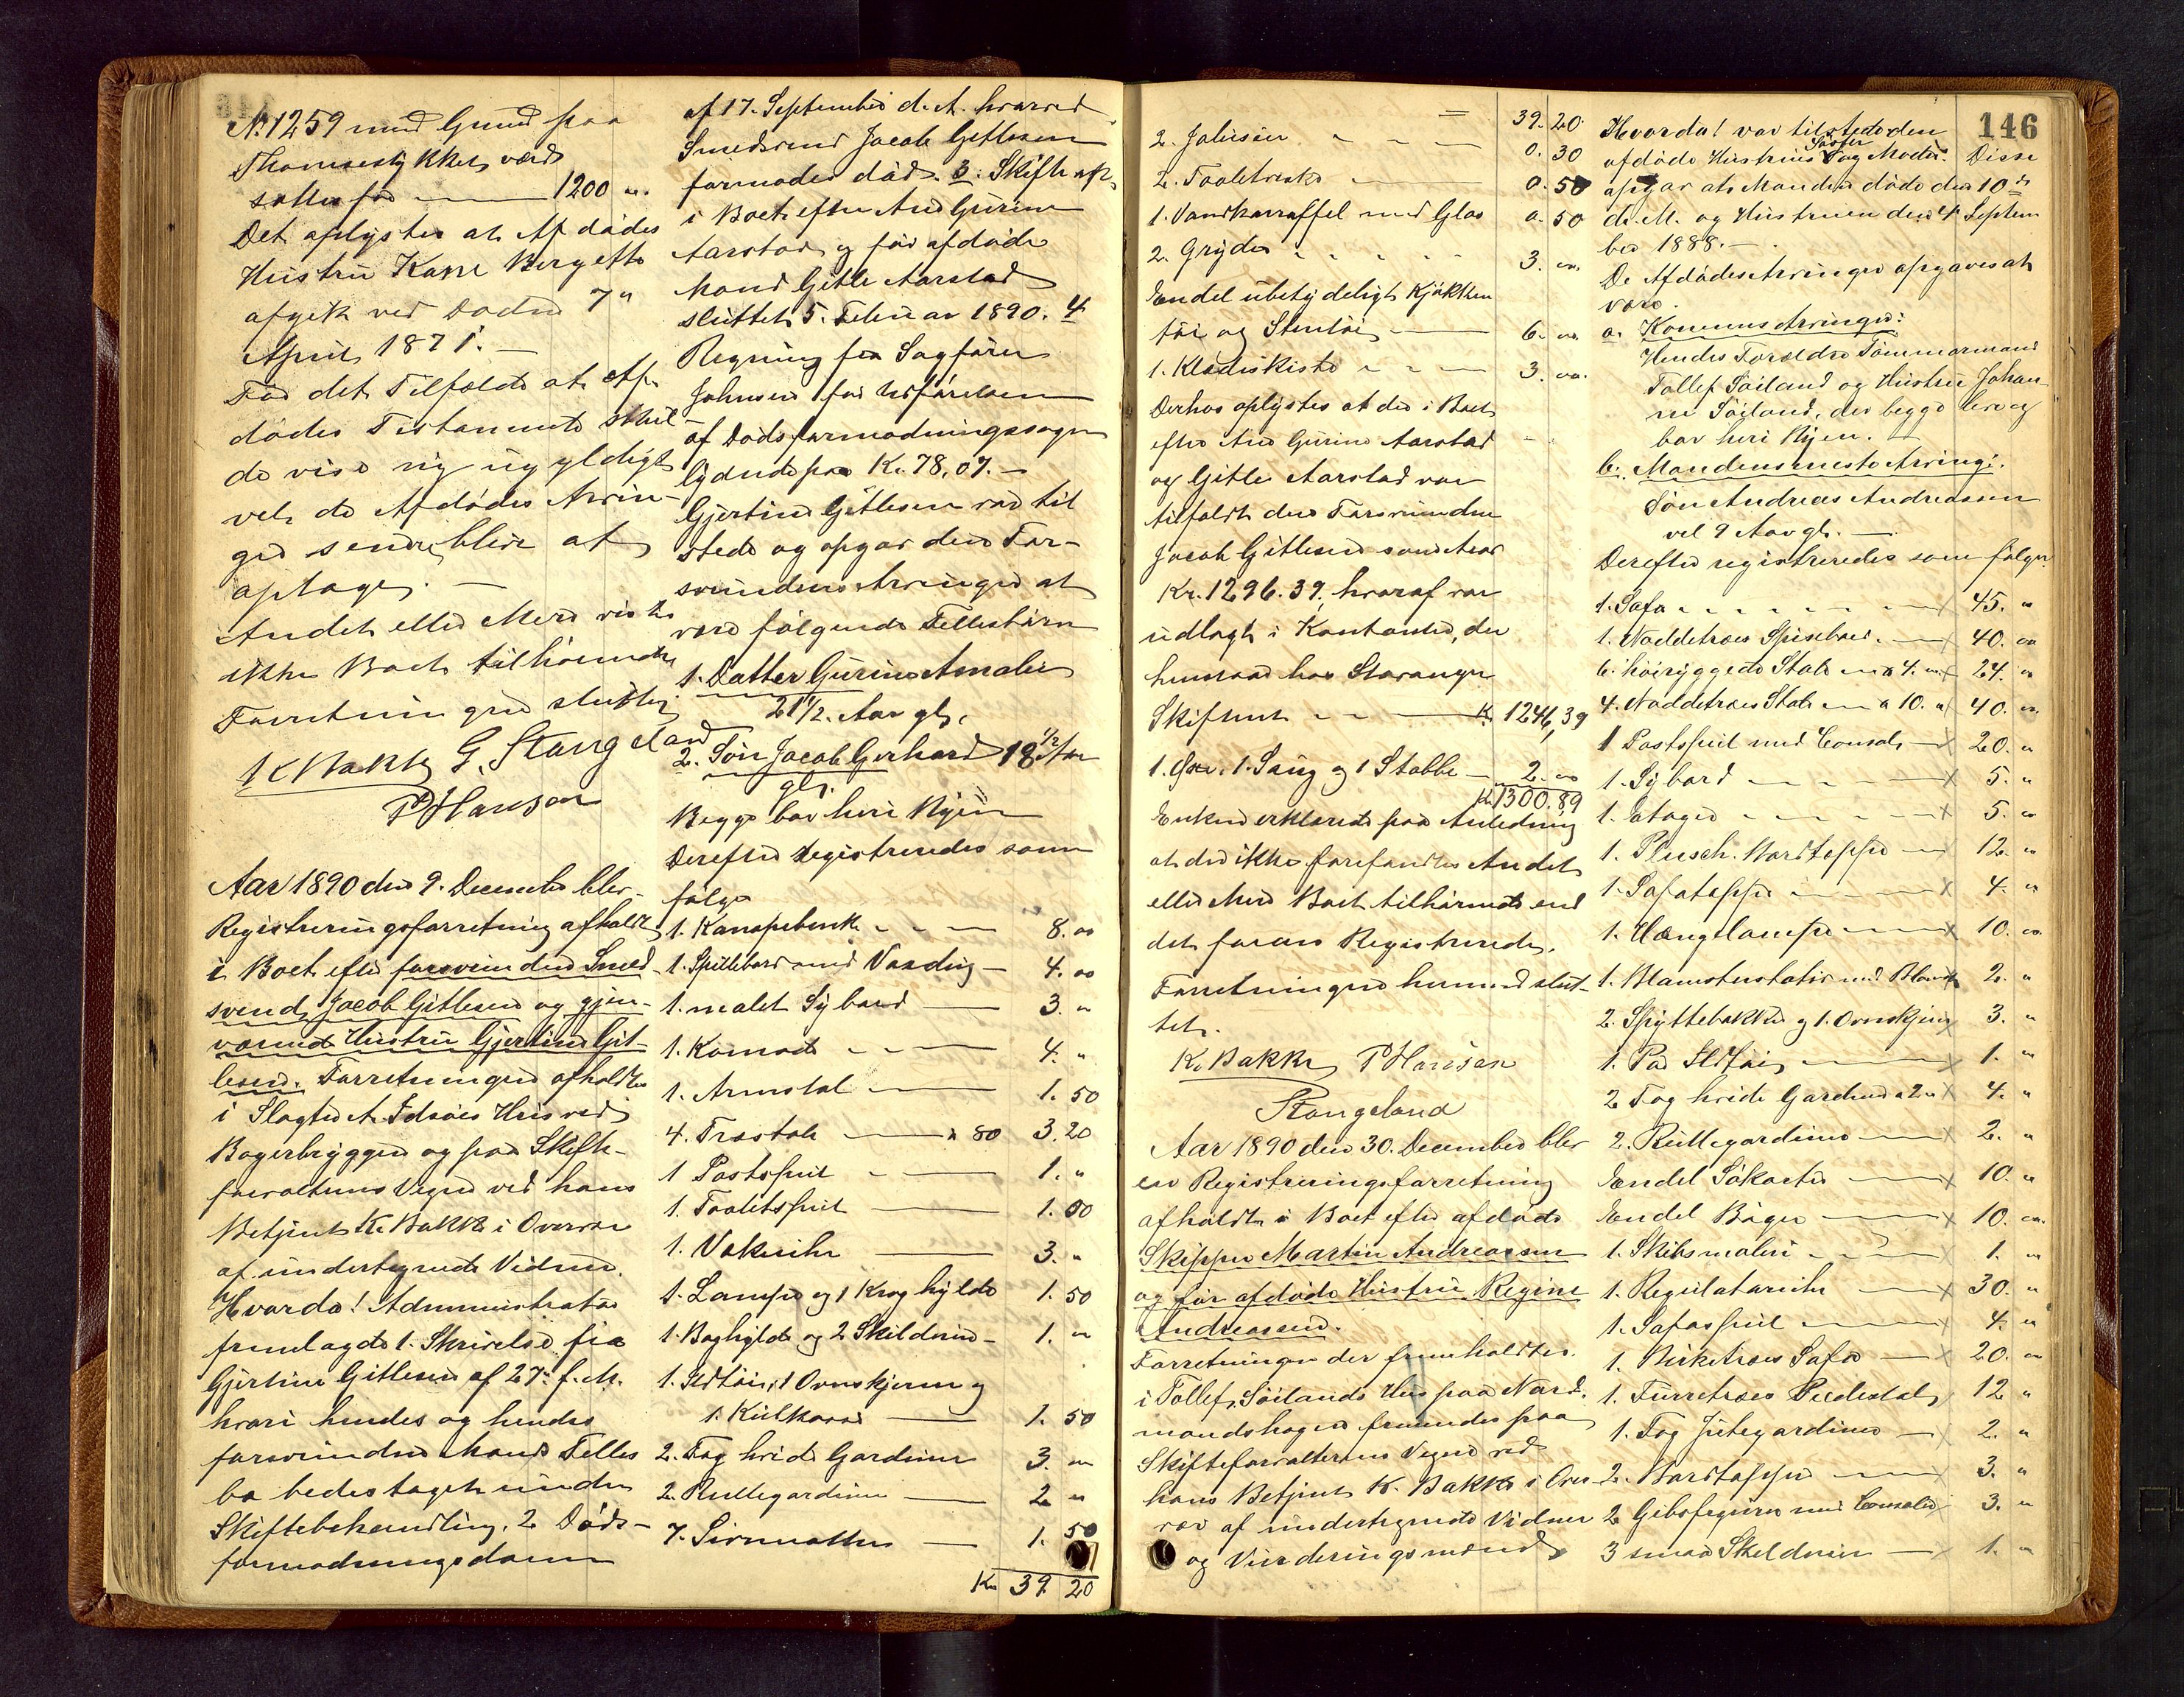 No 1259 med Grund paa
Thomsestykket værd
sættes for — 1200 "
Det oplystes at Afdødes
Hustru Karre Bergette
afgik ved Døden 7de
April 1871. —
For det Tilfælde at Af-
dødes Testamente skul-
de vise sig ugyldigt
vil de Afdødes Arvin-
ger senere blive at
optage. —
Andet eller Mere vistes
ikke Boet tilhørende
Forretningen sluttet
K Bakke G. Stangeland
P Hansen
Aar 1890 den 9. December blev
Registreringsforretning afholdt
i Boet efter forsvunden Smed-
svend Jacob Gitlesen og gjen-
værende Hustru Gjertine Git-
lesen. Forretningen afholdtes
i Slagter A. Idsøes Hus ved
Bagerbryggen og paa Skifte-
forvalterens Vegne ved hans
Betjent K. Bakke i Overvær
af undertegnede Vidner.
Hvorda! Administrator
fremlagde 1. Skrivelse fra
Gjertine Gitlesen af 27. f. M.
hvori hendes og hendes
forsvundne Mands Fælles
bo bedes taget under
Skiftebehandling. 2 Døds-
formodningsdom
af 17. September d. A. hvorved
Smedsvend Jacob Gitlesen
formodes død. 3. Skifteafs.
i Boet efter Ane Gurine
Aarstad og før afdøde
Mand Gitle Aarstad
sluttet 5. Februar 1890. 4
Regning fra Sagfører
Johnsen for Udførelsen
af Dødsformodningssagen
lydende paa Kr. 78,07. —
Gjertine Gitlesen var til
stede og opgav den For-
svundnes Arvinger at
være følgende Fællesbørn
1. Datter Gurine Amalie
21 1/2 Aar gl.
2. Søn Jacob Gerhard 18 1/2 Aar
gl.
Begge bor heri Byen
Derefter Registreredes som
følger
1. Kanapebænk — 8. 00
1. Spillebord med Voxdug — 4. 00
1. malet Sybord — 3. "
1. Komode — 4. "
1. Armstol — 1. 50
4. Træstole — à 80 3. 20
1 Postspeil — 1. "
1. Toaletspeil — 1. 00
1. Vækerihr — 3. "
1. Lampe og 1 Kroghylde 1. 50
1. Boghylde og 2 Skilderier — 1. "
1. Ildtøi, 1 Ovnskjerm og
1. Kulkasse — 1. 50
2. Fag hvide Gardiner 3. "
2. Rullegardiner — 2. "
7. Sivmatter — 1. 50
Kr. 39. 20
= 39. 20
2. Jalusier — 0. 30
2. Toaletæsker — 0. 50
1. Vandkarraffel med Glas 0. 50
2. Gryder 3. "
Endel ubetydeligt Kjøkken
tøi og Stentøi — 6. "
1. Klædiskiste — 3. "
Derhos oplystes at der i Boet
efter Ane Gurine Aarstad
og Gitle Aarstad var
tilfaldt den Forsvundne
Jacob Gitlesen som Arv
Kr. 1296.39, hvoraf var
udlagt i Kontanter, der
henstaar hos Stavanger
Skifteret — K. 1246,39
1. Øxe, 1. Saug og 1 Stabbe — 2. 00
Kr. 1300.89
Enken erklærede paa Anledning
at der ikke forefandtes Andet
eller Mere Boet tilhørende end
det foran Registrerede.
Forretningen hermed slut-
tet.
K. Bakke P Hansen
Stangeland
Aar 1890 den 30. December blev
en Registreringsforretning
afholdt i Boet efter afdøde
Skipper Martin Andreassen
og før afdøde Hustru Regine
Andreassen.
Forretningen der fremholdtes
i Tollef Søilands Hus paa Nord-
mandshagen fremmedes paa
Skifteforvalterens Vegne ved
hans Betjent K. Bakke i Over
vær af undertegnede Vidner
og Vurderingsmænd
146
Hvorda! var tilstede den
afdøde Hustrues Søster og Moder. Disse
opgav at Manden døde den 10de
ds. M. og Hustruen den 4 Septem
ber 1888. —
De Afdødes Arvinger opgaves at
være.
a. Konens Arvinger:
Hendes Forældre Tømmermand
Tollef Søiland og Hustru Johan-
ne Søiland, der begge lever og
bor heri Byen. —
b. Mandens eneste Arving:
Søn Andreas Andreassen
vel 9 Aar gl. —
Derefter registreredes som følger
1. Sofa — 45. "
1. Nøddetræes Spisebord — 40. "
6. høiryggede Stole — à 4. " 24. "
4. Nøddetræes Stole — à 10. " 40. "
1 Postspeil med Consol — 20. "
1. Sybord — 5. "
1. Etager — 5. "
1. Plusch. Bordteppe — 12. "
1. Sofateppe — 4. "
1. Hængelampe — 10. "
1. Blomsterstativ med Blomster 2. "
2. Spyttebakker og 1. Ovnskjerm 3. "
1. Par Ildtøi — 1. "
2 Fag hvide Gardiner à 2. " 4. "
2. Rullegardiner — 2. "
Endel Søkarter — 10. "
Endel Bøger — 10. "
1. Skibsmaleri — 1. "
1. Regulatorihr — 30. "
1. Sofaspeil — 4. "
1. Birketræes Sofa — 20. "
1. Furretræes Piedestal 12 "
1. Fag Jutegardiner — 2. "
2. Bordtepper — 3. "
2 Gibsfigurer med Consoler 3. "
3 smaa Skilderier — 1. "